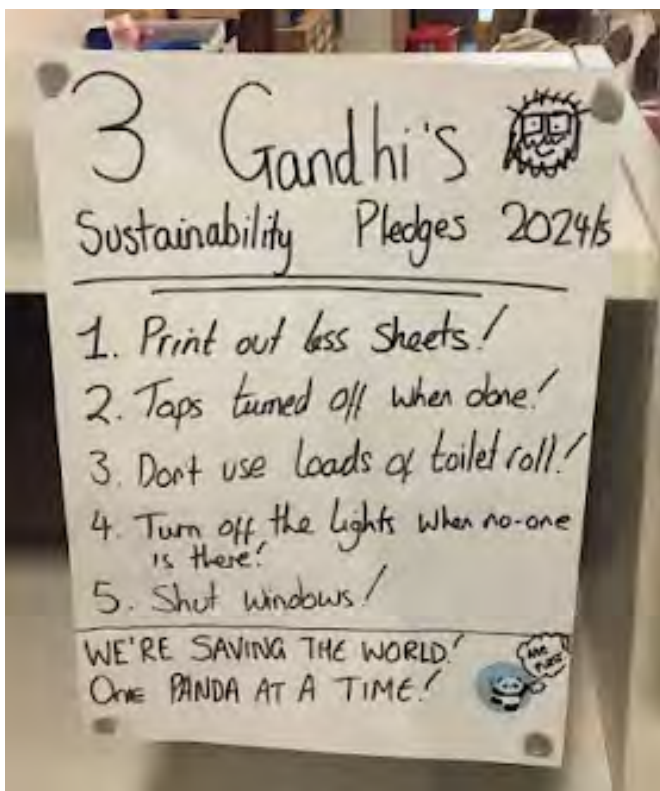 3 Gandhi's
Sustainability Pledges 2024/5
1. Print out less sheets!
2. Taps turned off when done!
3. Dont use loads of toilet roll!
4. Turn off the lights when no-one
is there!
5. Shut windows!
WE'RE SAVING THE WORLD!
ONE PANDA AT A TIME!